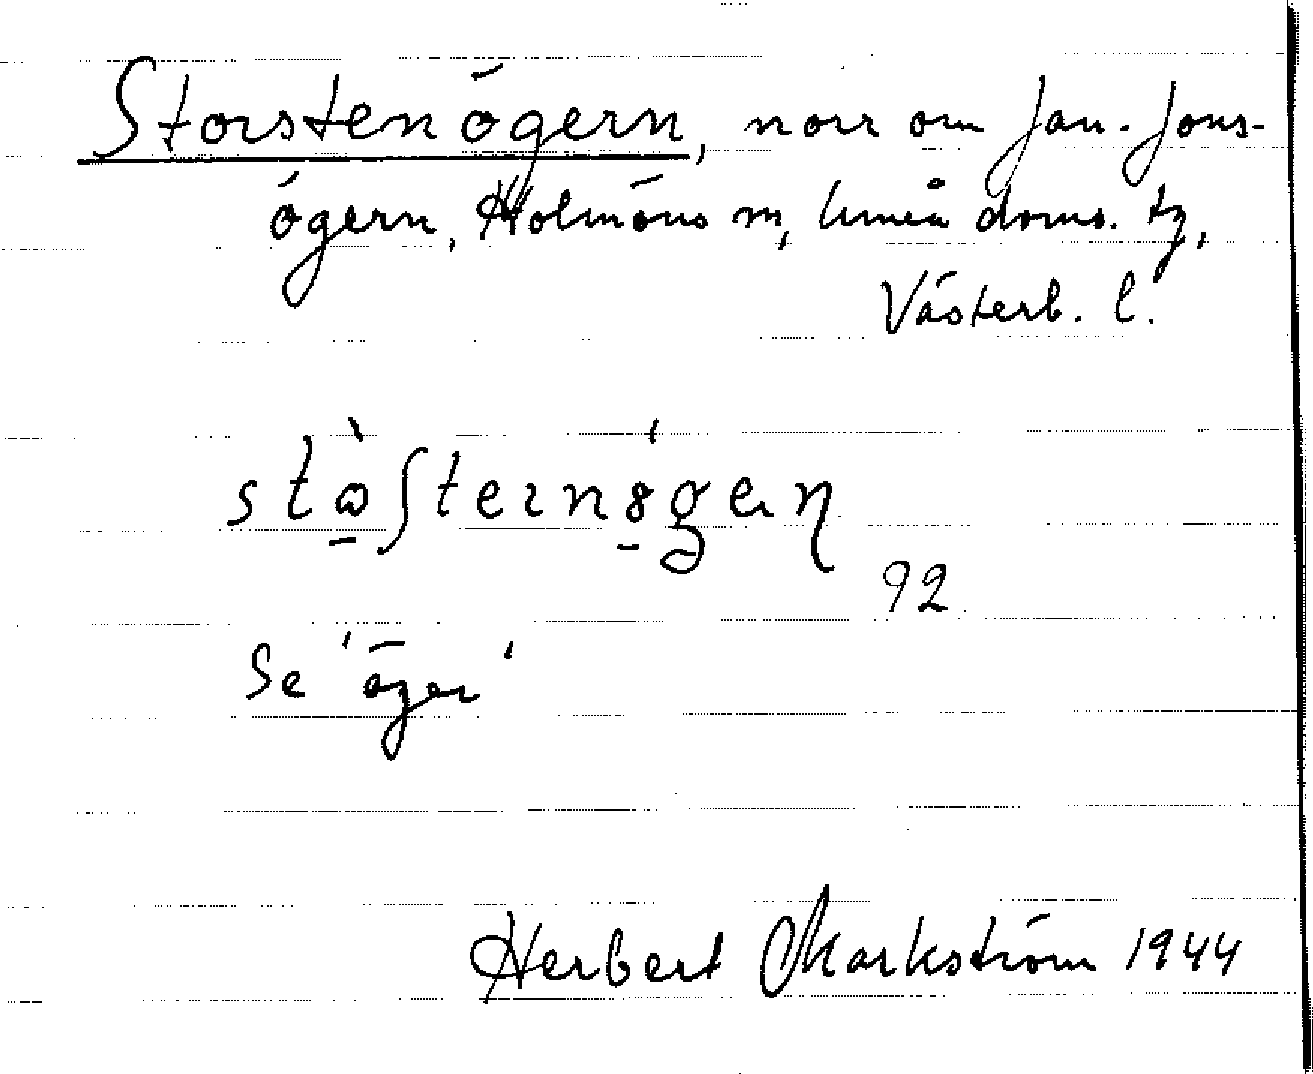 Storstenögern, norr om Jan-Jons-
ögern, Holmöns sn, Umeå doms. tg,
Västerb. l.
92
Se 'öger'
Herbert Markström 1944